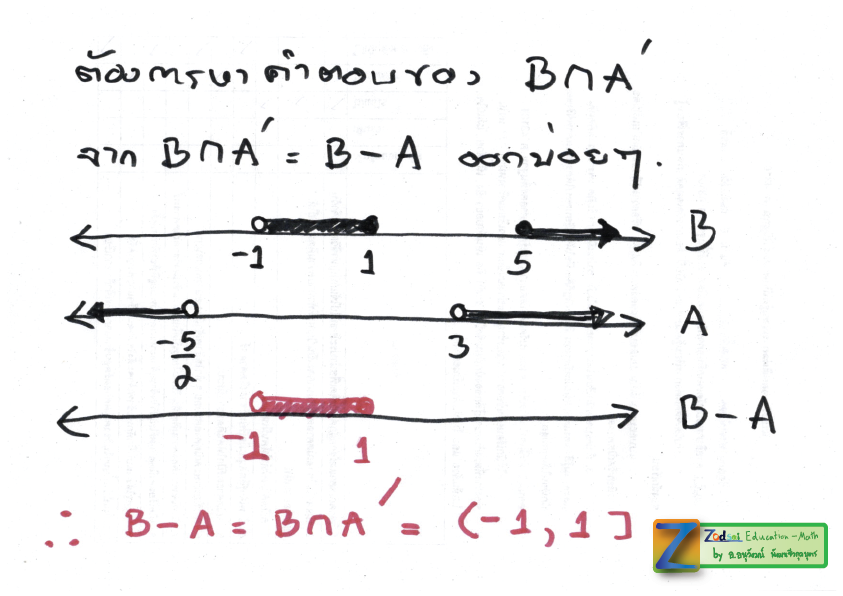 ต้องการหาคำตอบของ B∩A′
จาก B∩A′ = B − A ออกบ่อยๆ.
B
-1 1 5
A
-5/2 3
B − A
-1 1
∴ B − A = B∩A′ = (-1, 1]
Zodsai Education - Math
by อ.